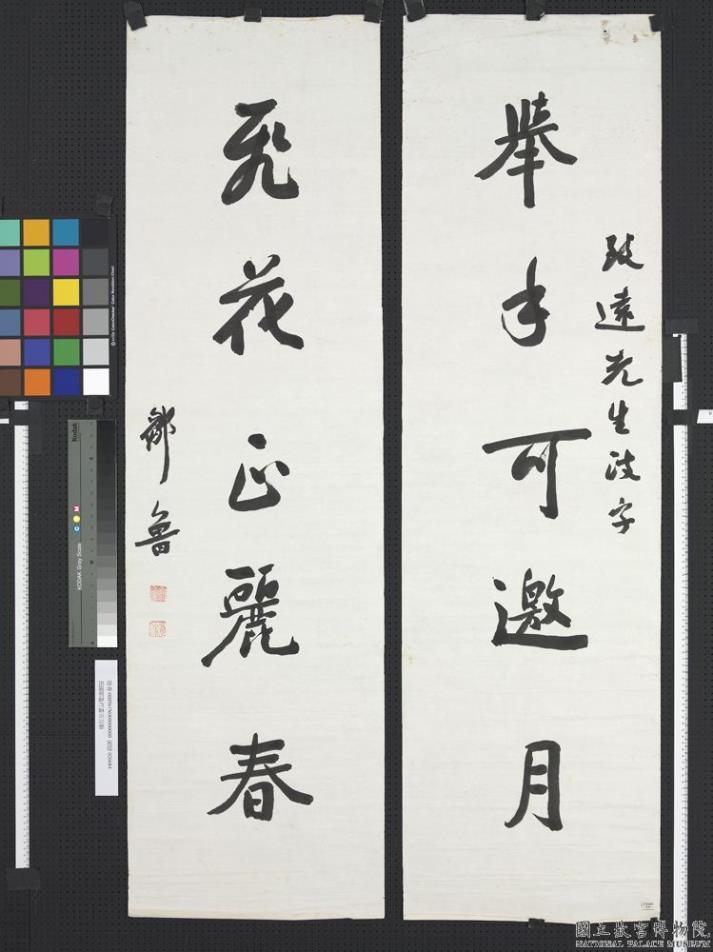 舉手可邀月
致遠先生法字
飛花正麗春
鄒魯
Kodak
KODAK Gray Scale
C
Y
M
國立故宮博物院
NATIONAL PALACE MUSEUM